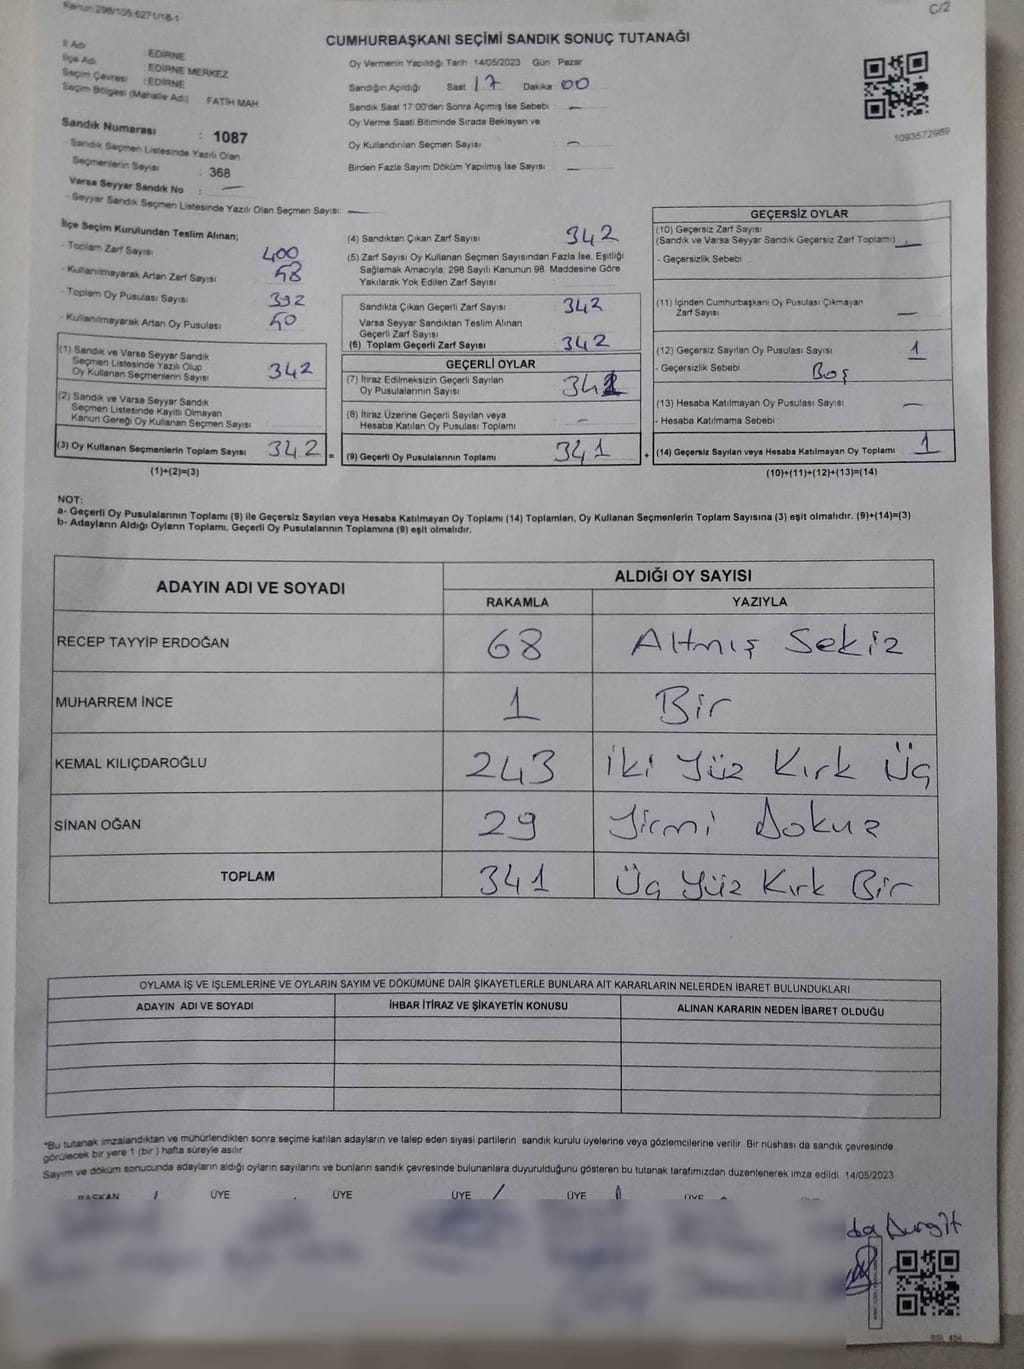 Kanun 298/105,6271/18-1
C/2
CUMHURBAŞKANI SEÇİMİ SANDIK SONUÇ TUTANAĞI
İl Adı : EDİRNE
İlçe Adı : EDİRNE MERKEZ
Seçim Çevresi : EDİRNE
Seçim Bölgesi (Mahalle Adı) FATİH MAH
Sandık Numarası : 1087
- Sandık Seçmen Listesinde Yazılı Olan
Seçmenlerin Sayısı : 368
Varsa Seyyar Sandık No : —
- Seyyar Sandık Seçmen Listesinde Yazılı Olan Seçmen Sayısı: —
Oy Vermenin Yapıldığı Tarih 14/05/2023 Gün : Pazar
Sandığın Açıldığı Saat 17 Dakika 00
Sandık Saat 17:00'den Sonra Açılmış İse Sebebi —
Oy Verme Saati Bitiminde Sırada Bekleyen ve
Oy Kullandırılan Seçmen Sayısı —
Birden Fazla Sayım Döküm Yapılmış İse Sayısı —
1093572989
İlçe Seçim Kurulundan Teslim Alınan;
- Toplam Zarf Sayısı 400
- Kullanılmayarak Artan Zarf Sayısı 58
- Toplam Oy Pusulası Sayısı 392
- Kullanılmayarak Artan Oy Pusulası 50
(1) Sandık ve Varsa Seyyar Sandık
Seçmen Listesinde Yazılı Olup
Oy Kullanan Seçmenlerin Sayısı 342
(2) Sandık ve Varsa Seyyar Sandık
Seçmen Listesinde Kayıtlı Olmayan
Kanun Gereği Oy Kullanan Seçmen Sayısı
(3) Oy Kullanan Seçmenlerin Toplam Sayısı 342 =
(1)+(2)=(3)
(4) Sandıktan Çıkan Zarf Sayısı 342
(5) Zarf Sayısı Oy Kullanan Seçmen Sayısından Fazla İse, Eşitliği
Sağlamak Amacıyla, 298 Sayılı Kanunun 98. Maddesine Göre
Yakılarak Yok Edilen Zarf Sayısı
Sandıkta Çıkan Geçerli Zarf Sayısı 342
Varsa Seyyar Sandıktan Teslim Alınan
Geçerli Zarf Sayısı
(6) Toplam Geçerli Zarf Sayısı 342
GEÇERLİ OYLAR
(7) İtiraz Edilmeksizin Geçerli Sayılan
Oy Pusulalarının Sayısı 341
(8) İtiraz Üzerine Geçerli Sayılan veya
Hesaba Katılan Oy Pusulası Toplamı —
(9) Geçerli Oy Pusulalarının Toplamı 341 +
GEÇERSİZ OYLAR
(10) Geçersiz Zarf Sayısı
(Sandık ve Varsa Seyyar Sandık Geçersiz Zarf Toplamı) —
- Geçersizlik Sebebi
(11) İçinden Cumhurbaşkanı Oy Pusulası Çıkmayan
Zarf Sayısı —
(12) Geçersiz Sayılan Oy Pusulası Sayısı 1
- Geçersizlik Sebebi Boş
(13) Hesaba Katılmayan Oy Pusulası Sayısı —
- Hesaba Katılmama Sebebi
(14) Geçersiz Sayılan veya Hesaba Katılmayan Oy Toplamı 1
(10)+(11)+(12)+(13)=(14)
NOT:
a- Geçerli Oy Pusulalarının Toplamı (9) ile Geçersiz Sayılan veya Hesaba Katılmayan Oy Toplamı (14) Toplamları, Oy Kullanan Seçmenlerin Toplam Sayısına (3) eşit olmalıdır. (9)+(14)=(3)
b- Adayların Aldığı Oyların Toplamı, Geçerli Oy Pusulalarının Toplamına (9) eşit olmalıdır.
ADAYIN ADI VE SOYADI ALDIĞI OY SAYISI
RAKAMLA YAZIYLA
RECEP TAYYİP ERDOĞAN 68 Altmış Sekiz
MUHARREM İNCE 1 Bir
KEMAL KILIÇDAROĞLU 243 iki Yüz Kırk Üç
SİNAN OĞAN 29 Yirmi Dokuz
TOPLAM 341 Üç Yüz Kırk Bir
OYLAMA İŞ VE İŞLEMLERİNE VE OYLARIN SAYIM VE DÖKÜMÜNE DAİR ŞİKAYETLERLE BUNLARA AİT KARARLARIN NELERDEN İBARET BULUNDUKLARI
ADAYIN ADI VE SOYADI İHBAR İTİRAZ VE ŞİKAYETİN KONUSU ALINAN KARARIN NEDEN İBARET OLDUĞU
*Bu tutanak imzalandıktan ve mühürlendikten sonra seçime katılan adayların ve talep eden siyasi partilerin sandık kurulu üyelerine veya gözlemcilerine verilir. Bir nüshası da sandık çevresinde
görülecek bir yere 1 (bir) hafta süreyle asılır.
Sayım ve döküm sonucunda adayların aldığı oyların sayılarını ve bunların sandık çevresinde bulunanlara duyurulduğunu gösteren bu tutanak tarafımızdan düzenlenerek imza edildi 14/05/2023
BAŞKAN ÜYE ÜYE ÜYE ÜYE ÜYE